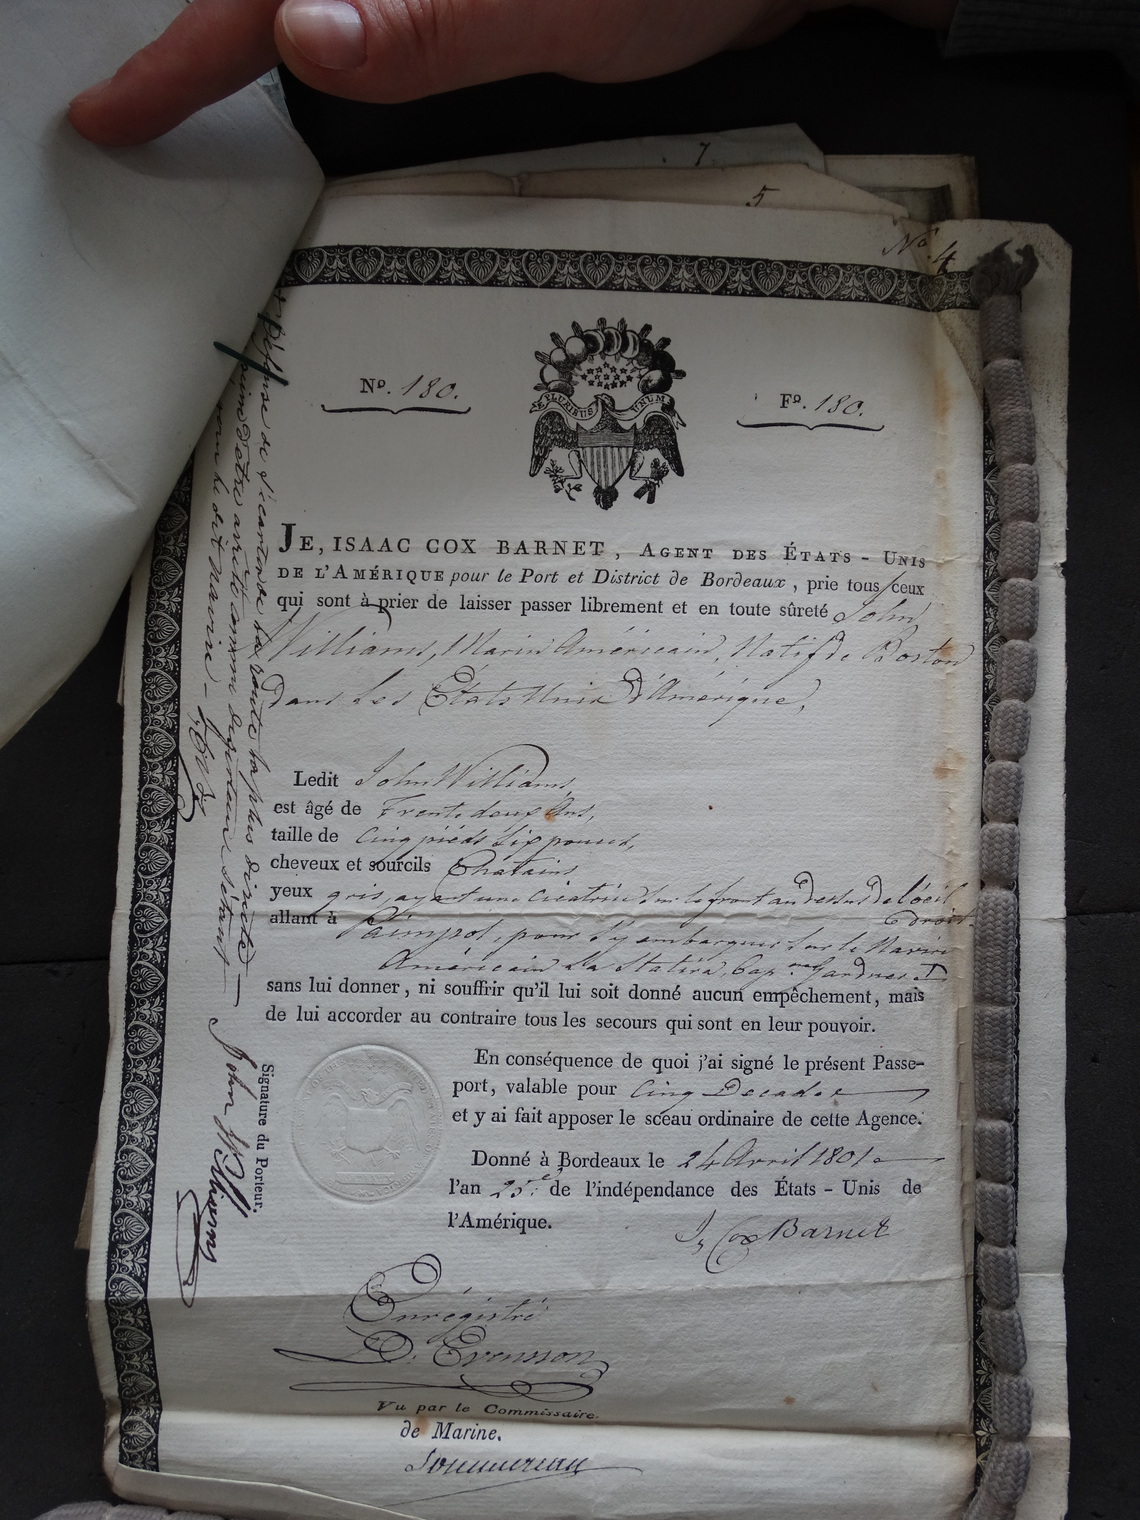 7
5
No. 4
No. 180.
Fo. 180.
E PLURIBUS UNUM
JE, ISAAC COX BARNET, AGENT DES ÉTATS-UNIS
DE L'AMÉRIQUE pour le Port et District de Bordeaux, prie tous ceux
qui sont à prier de laisser passer librement et en toute sûreté John
Williams, Marin Américain, Natif de Boston
dans les États Unis d'Amérique,
Ledit John Williams,
est âgé de Trente deux Ans,
taille de Cinq pieds six pouces,
cheveux et sourcils Chatains
yeux gris, ayant une cicatrice sur le front au dessus de l'oeil
droit
allant à Paimpol, pour s'y embarquer sur le Navire
Américain La Statira, Cap.ne Gardner
sans lui donner, ni souffrir qu'il lui soit donné aucun empêchement, mais
de lui accorder au contraire tous les secours qui sont en leur pouvoir.
En conséquence de quoi j'ai signé le présent Passe-
port, valable pour Cinq Decades
et y ai fait apposer le sceau ordinaire de cette Agence.
Donné à Bordeaux le 24 Avril 1801
l'an 25e de l'indépendance des États-Unis de
l'Amérique.
I. Cox Barnet
Signature du Porteur.
John Williams
Enrégistré
D. Evensson
Vu par le Commissaire
de Marine.
défense de s'écarter de sa route la plus directe
peine d'être arrêté comme déserteur s'étant
le dit navire